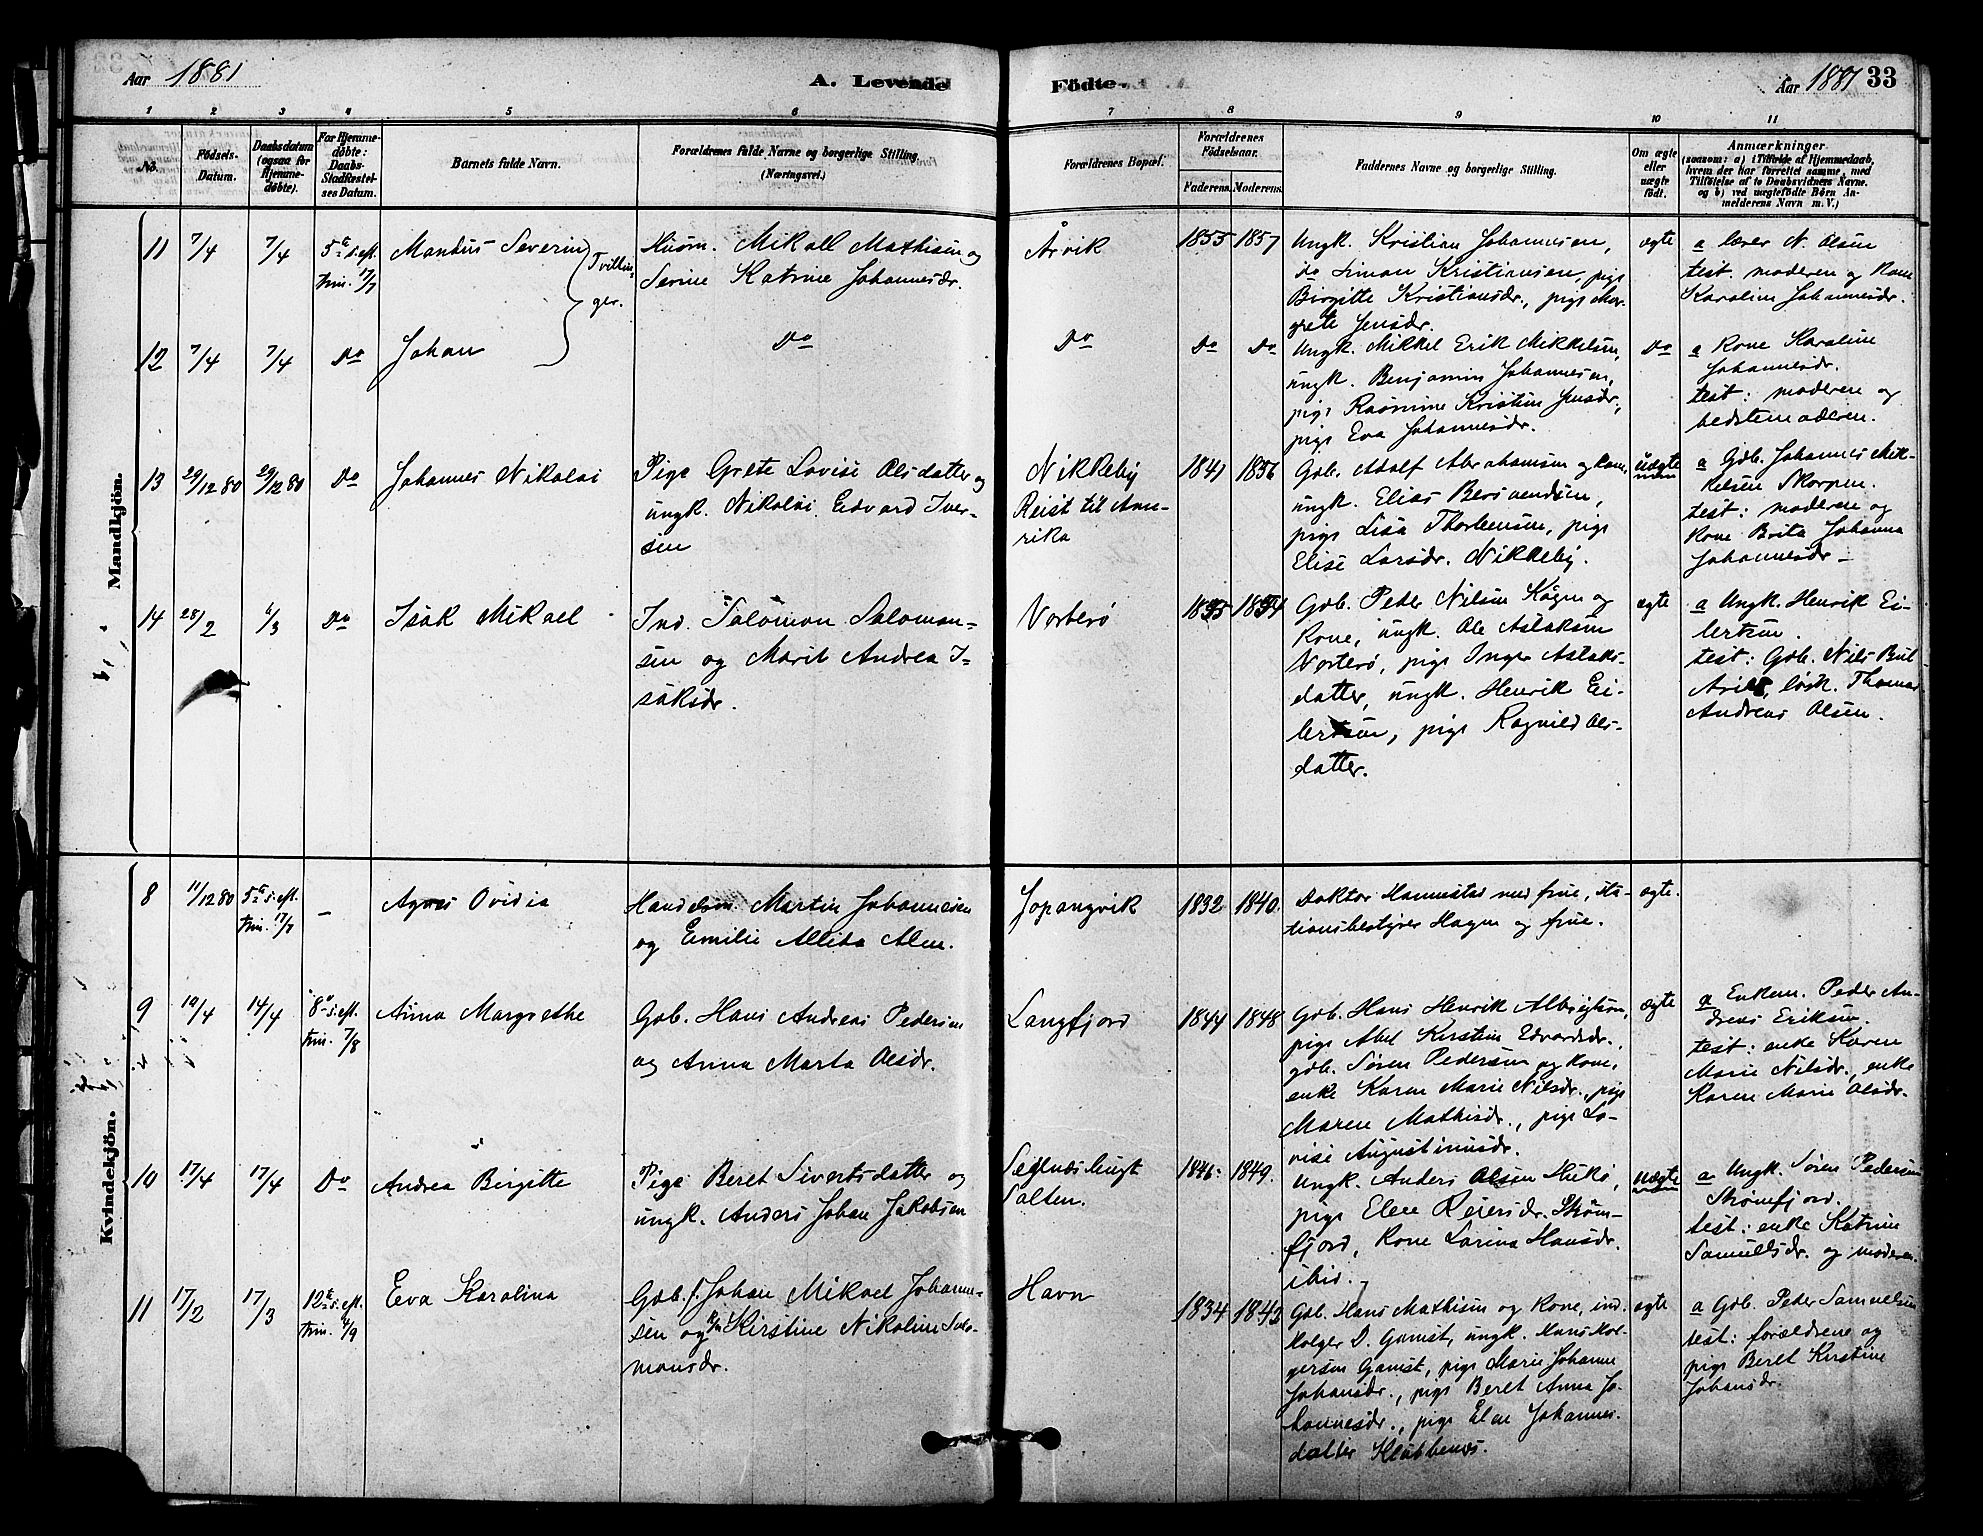 Aar 1881
A. Levende Födte.
Aar 1881 33
1 2 3 4 5 6 7 8 9 10 11
No.
Födsels-
Datum.
Daabsdatum
(ogsaa for
Hjemme-
döbte).
For Hjemme-
döbte:
Daabs-
Stadfæstel-
ses Datum.
Barnets fulde Navn.
Forældrenes fulde Navne og borgerlige Stilling.
(Næringsvei.)
Forældrenes Bopæl.
Forældrenes
Födselsaar.
Faderens. Moderens.
Faddernes Navne og borgerlige Stilling.
Om ægte
eller
uægte
födt.
Anmærkninger
(saasom: a) i Tilfælde af Hjemmedaab,
hvem der har forrettet samme, med
Tilföielse af to Daabsvidners Navne.
og b) ved uægtefödte Börn An-
melderens Navn m. V.)
Mandkjön.
11 7/4 7/4 5te s. eft.
trin. 17/7
Mandus Severin
Tvillin-
ger.
Husm. Mikall Mathisen og
Serine Katrine Johannesdr.
Årvik
1855 1857
Ungk. Kristian Johannesen,
do Simon Kristiansen, pige
Birgitte Kristiansdr., pige Mar-
grete Jensdr.
ægte
a lærer N. Olsen
test. moderen og Kone
Karolina Johannesdr.
12 7/4 7/4 Do Johan
Do
Do
Do Do
Ungk. Mikkel Erik Mikkelsen,
ungk. Benjamin Johannesen,
pige Rasmine Kristine Jensdr.,
pige Eva Johannesdr.
Do
a Kone Karoline
Johannesdr.
test: moderen og
bedstemoderen.
13 29/12 80 29/12 80 Do Johannes Nikolai
Pige Grete Lovise Olsdatter og
ungk. Nikolai Edvard Iver-
sen
Nikkeby
Reist til Ame-
rika
1841 1856
Gdb. Adolf Abrahamsen og kone,
ungk. Elias Bersvendsen,
pige Lisa Thorbensen, pige
Elise Larsdr. Nikkeby.
uægte
a Gdb. Johannes Mik-
kelsen Skorpen.
test: moderen og
Kone Brita Johanna
Johannesdr –
14 28/2 6/3 Do Isak Mikael
Ind. Salomon Salomon-
sen og Marit Andrea I-
saksdr.
Vorterø
1855 1854
Gdb. Peder Nilsen Kågen og
Kone, ungk. Ole Aslaksen
Vorterø, pige Inger Aslaks-
datter, ungk. Henrik Ei-
lertsen, pige Ragnild Ols-
datter.
ægte
a Ungk. Henrik Ei-
lertsen.
test: Gdb. Nils
løsk. Thomas
Andreas Olsen.
Kvindekjön.
8 11/12 80 5te s. eft.
trin. 17/7
–
Agnes Ovidia
Handelsm. Martin Johannesen
og Emilie Allida Alm.
Jopangvik
1832 1840.
Doktor Hannestad med frue, sta-
tionsbestyrer Hagen og frue.
ægte.
9 10/4 14/4 8de s. eft.
trin. 7/8
Anna Margrethe
Gdb. Hans Andreas Pedersen
og Anna Marta Olsdr.
Langfjord
1844 1848
Gdb. Hans Henrik Albrigtsen,
pige Abel Kerstin Edvardsdr.,
gdb. Søren Pedersen og kone,
enke Karen Marie Nilsdr., pige
Maren Mathisdr., pige Lo-
vise Augustinusdr.
ægte
a Enkem. Peder An-
dreas Eriksen.
test: enke Karen
Marie Nilsdr., enke
Karen Marie Olsdr.
10 17/4 17/4 Do Andrea Birgitte
Pige Beret Sivertsdatter og
ungk. Anders Johan Jakobsen
Segelnæsbugt
Salten.
1846. 1849.
Ungk. Anders Olsen Hukø,
pige Elen Reiersdr. Strøm-
fjord, Kone Larina Hansdr.
ibid.
uægte
a Ungk. Søren Pedersen
Strømfjord.
test: enke Katrine
Samuelsdr. og moderen.
11 17/2 17/3 12te s. eft.
trin. 4/9
Eva Karolina
Gdb. f. Johan Mikael Johann-
sen og Kirstine Nikoline Salo-
monsdr.
Havn
1834 1843
Gdb. Hans Mathisen og Kone, ind.
Holger D. Gamst, ungk. Hans Hol-
gersen Gamst, pige Marie Johanne
Johansdr., pige Beret Anna Jo-
hannesdr., pige Elen Johannes-
datter Klubbenes.
ægte
a Gdb. Peder Samuelsen
test: forældrene og
pige Beret Kirstine
Johansdr.